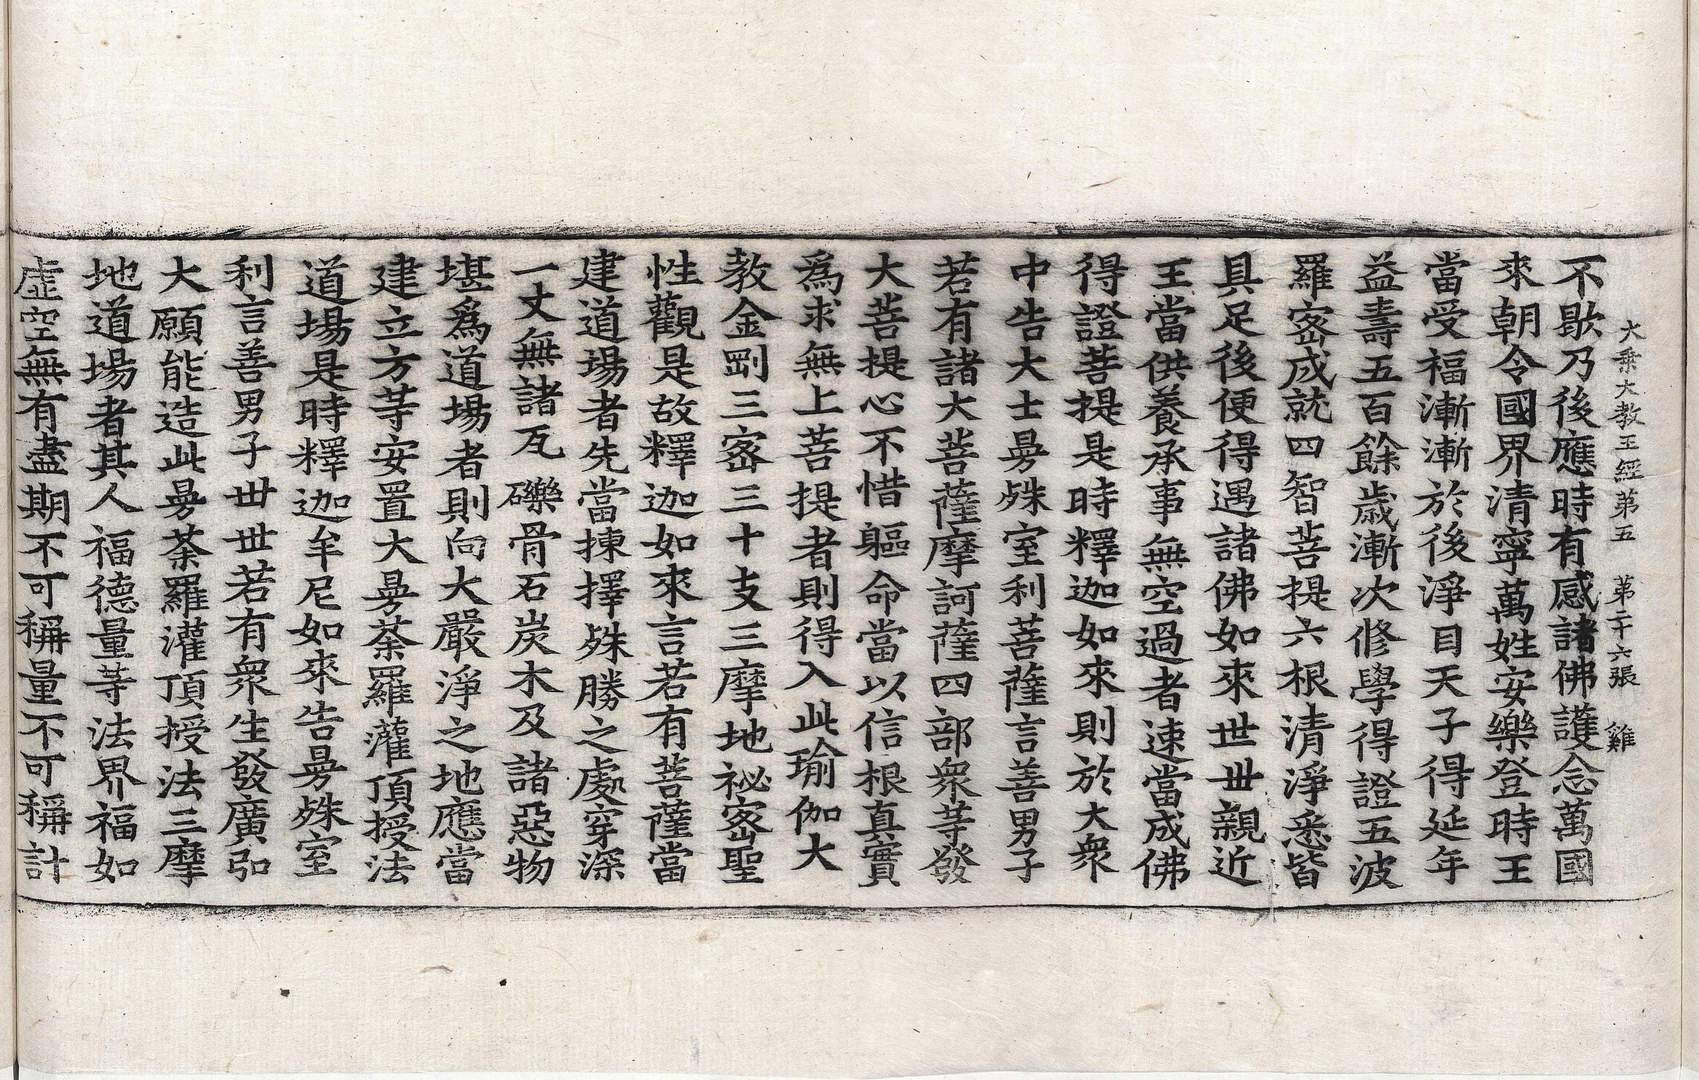 大乘大教王經第五 第二十六張 雞
不歇乃後應時有感諸佛護念萬國
來朝令國界清寧萬姓安樂登時王
當受福漸漸於後淨目天子得延年
益壽五百餘歲漸次修學得證五波
羅密成就四智菩提六根清淨悉皆
具足後便得遇諸佛如來世世親近
王當供養承事無空過者速當成佛
得證菩提是時釋迦如來則於大衆
中告大士曼殊室利菩薩言善男子
若有諸大菩薩摩訶薩四部衆等發
大菩提心不惜軀命當以信根真實
爲求無上菩提者則得入此瑜伽大
教金剛三密三十支三摩地祕密聖
性觀是故釋迦如來言若有菩薩當
建道場者先當揀擇殊勝之處穿深
一丈無諸瓦礫骨石炭木及諸惡物
堪爲道場者則向大嚴淨之地應當
建立方等安置大曼荼羅灌頂授法
道場是時釋迦牟尼如來告曼殊室
利言善男子世世若有衆生發廣弘
大願能造此曼荼羅灌頂授法三摩
地道場者其人福德量等法界福如
虛空無有盡期不可稱量不可稱計